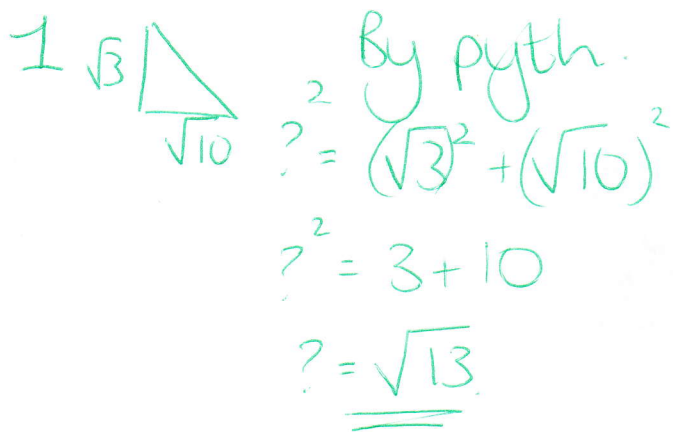 1
√3
√10
By pyth.
?² = (√3)² + (√10)²
?² = 3 + 10
? = √13